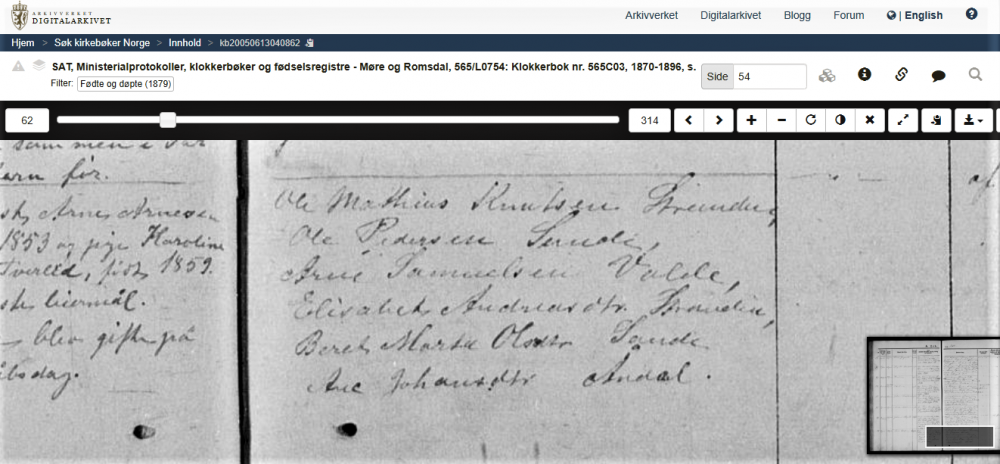 ARKIVVERKET
DIGITALARKIVET
Arkivverket Digitalarkivet Blogg Forum | English
Hjem > Søk kirkebøker Norge > Innhold > kb20050613040862
SAT, Ministerialprotokoller, klokkerbøker og fødselsregistre - Møre og Romsdal, 565/L0754: Klokkerbok nr. 565C03, 1870-1896, s.
Filter: Fødte og døpte (1879)
Side 54
62 314
før.
Arne Arnesen
1853 og pige Karoline
født 1859.
blev gift på
af
Ole Mathius Knutsen Strande,
Ole Pedersen Sunde,
Arne Samuelsen Valde,
Elisabet Andreasdtr Strande,
Beret Marta Olsdtr Sande
Ane Johansdtr Åndal.